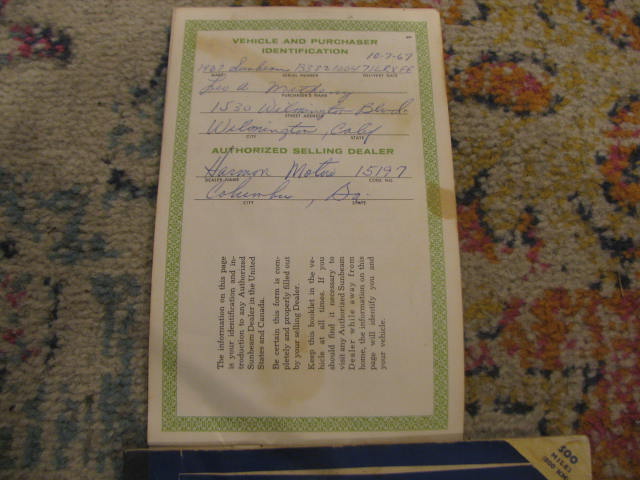 VEHICLE AND PURCHASER
IDENTIFICATION
10-7-67
1967 Sunbeam B382100471 LRXFE
NAME SERIAL NUMBER DELIVERY DATE
Leo A.
PURCHASER'S NAME
1530 Wilmington Blvd.
STREET ADDRESS
Wilmington, Calif
CITY STATE
AUTHORIZED SELLING DEALER
Harmon Motors 15197
DEALER NAME CODE NO.
Columbus, Ga.
CITY STATE
The information on this page
is your identification and in-
troduction to any Authorized
Sunbeam Dealer in the United
States and Canada.
Be certain this form is com-
pletely and properly filled out
by your selling Dealer.
Keep this booklet in the ve-
hicle at all times. If you
should find it necessary to
visit any Authorized Sunbeam
Dealer while away from
home, the information on this
page will identify you and
your vehicle.
500
MILES
(800 KM